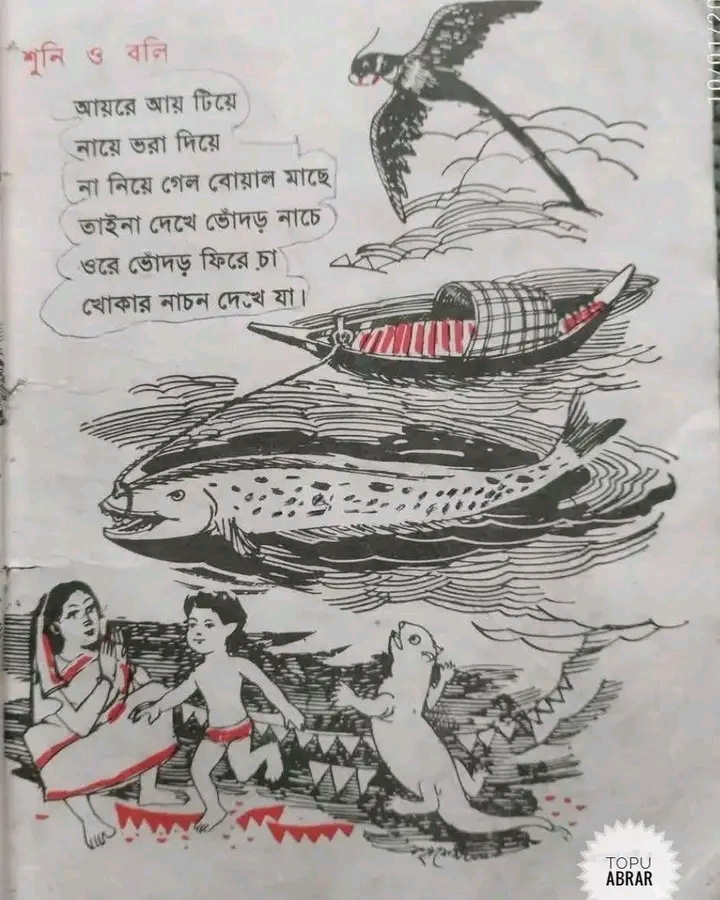 শুনি ও বলি
আয়রে আয় টিয়ে
নায়ে ভরা দিয়ে
না নিয়ে গেল বোয়াল মাছে
তাইনা দেখে ভোঁদড় নাচে
ওরে ভোঁদড় ফিরে চা
খোকার নাচন দেখে যা।
TOPU
ABRAR